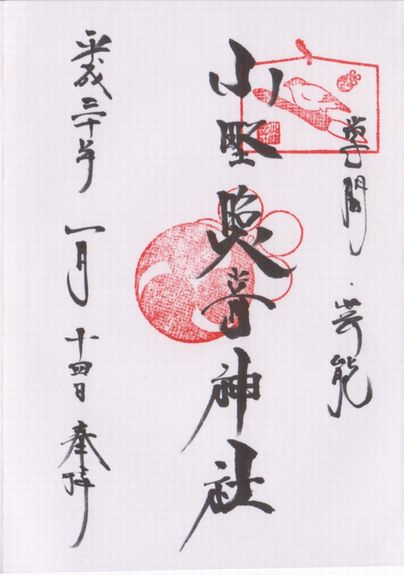 學問・芸能
小野照嵜神社
平成三十年 一月 十四日 奉拝